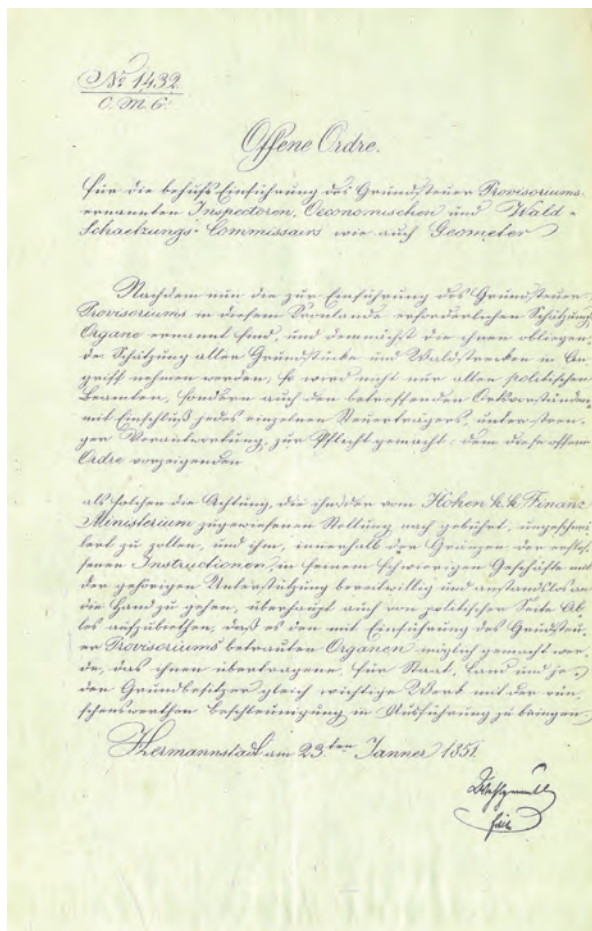 № 1432.
C. M. G.
Offene Ordre.
für die behufs Einführung des Grundsteuer Provisoriums
ernannten Inspectoren, Oeconomischen und Wald-
Schaetzungs-Commissairs wie auch Geometer
Nachdem nun die zur Einführung des Grundsteuer
Provisoriums in diesem Kronlande erforderlichen Schätzungs
Organe ernannt sind, und demnächst die ihnen obliegen,
de Schätzung aller Grundstücke und Waldstrecken in An,
griff nehmen werden, so wird nicht nur allen politischen
Beamten, sondern auch den betreffenden Ortsvorständen,
mit Einschluß jedes einzelnen Steuerträgers, unter stren,
ger Verantwortung, zur Pflicht gemacht: dem diese offene
Ordre vorzeigenden
als solchen die Achtung, die ihm der vom Hohen k. k. Finanz
Ministerium zugewiesenen Stellung nach gebührt, ungeschmä
lert zu zollen, und ihm, innerhalb der Gränzen der erflos,
senen Instructionen, in seinem schwierigen Geschäfte mit
der gehörigen Unterstützung bereitwillig und anstandslos an
die Hand zu gehen, überhaupt auch von politischer Seite Al,
les aufzubiethen, daß es den mit Einführung des Grundsteu,
er Provisoriums betrauten Organen möglich gemacht wer,
de, das ihnen übertragene, für Staat, Land und je,
den Grundbesitzer gleich wichtige Werk mit der wün,
schenswerthen Beschleunigung in Ausführung zu bringen,
Hermannstadt am 23ten Janner 1851.